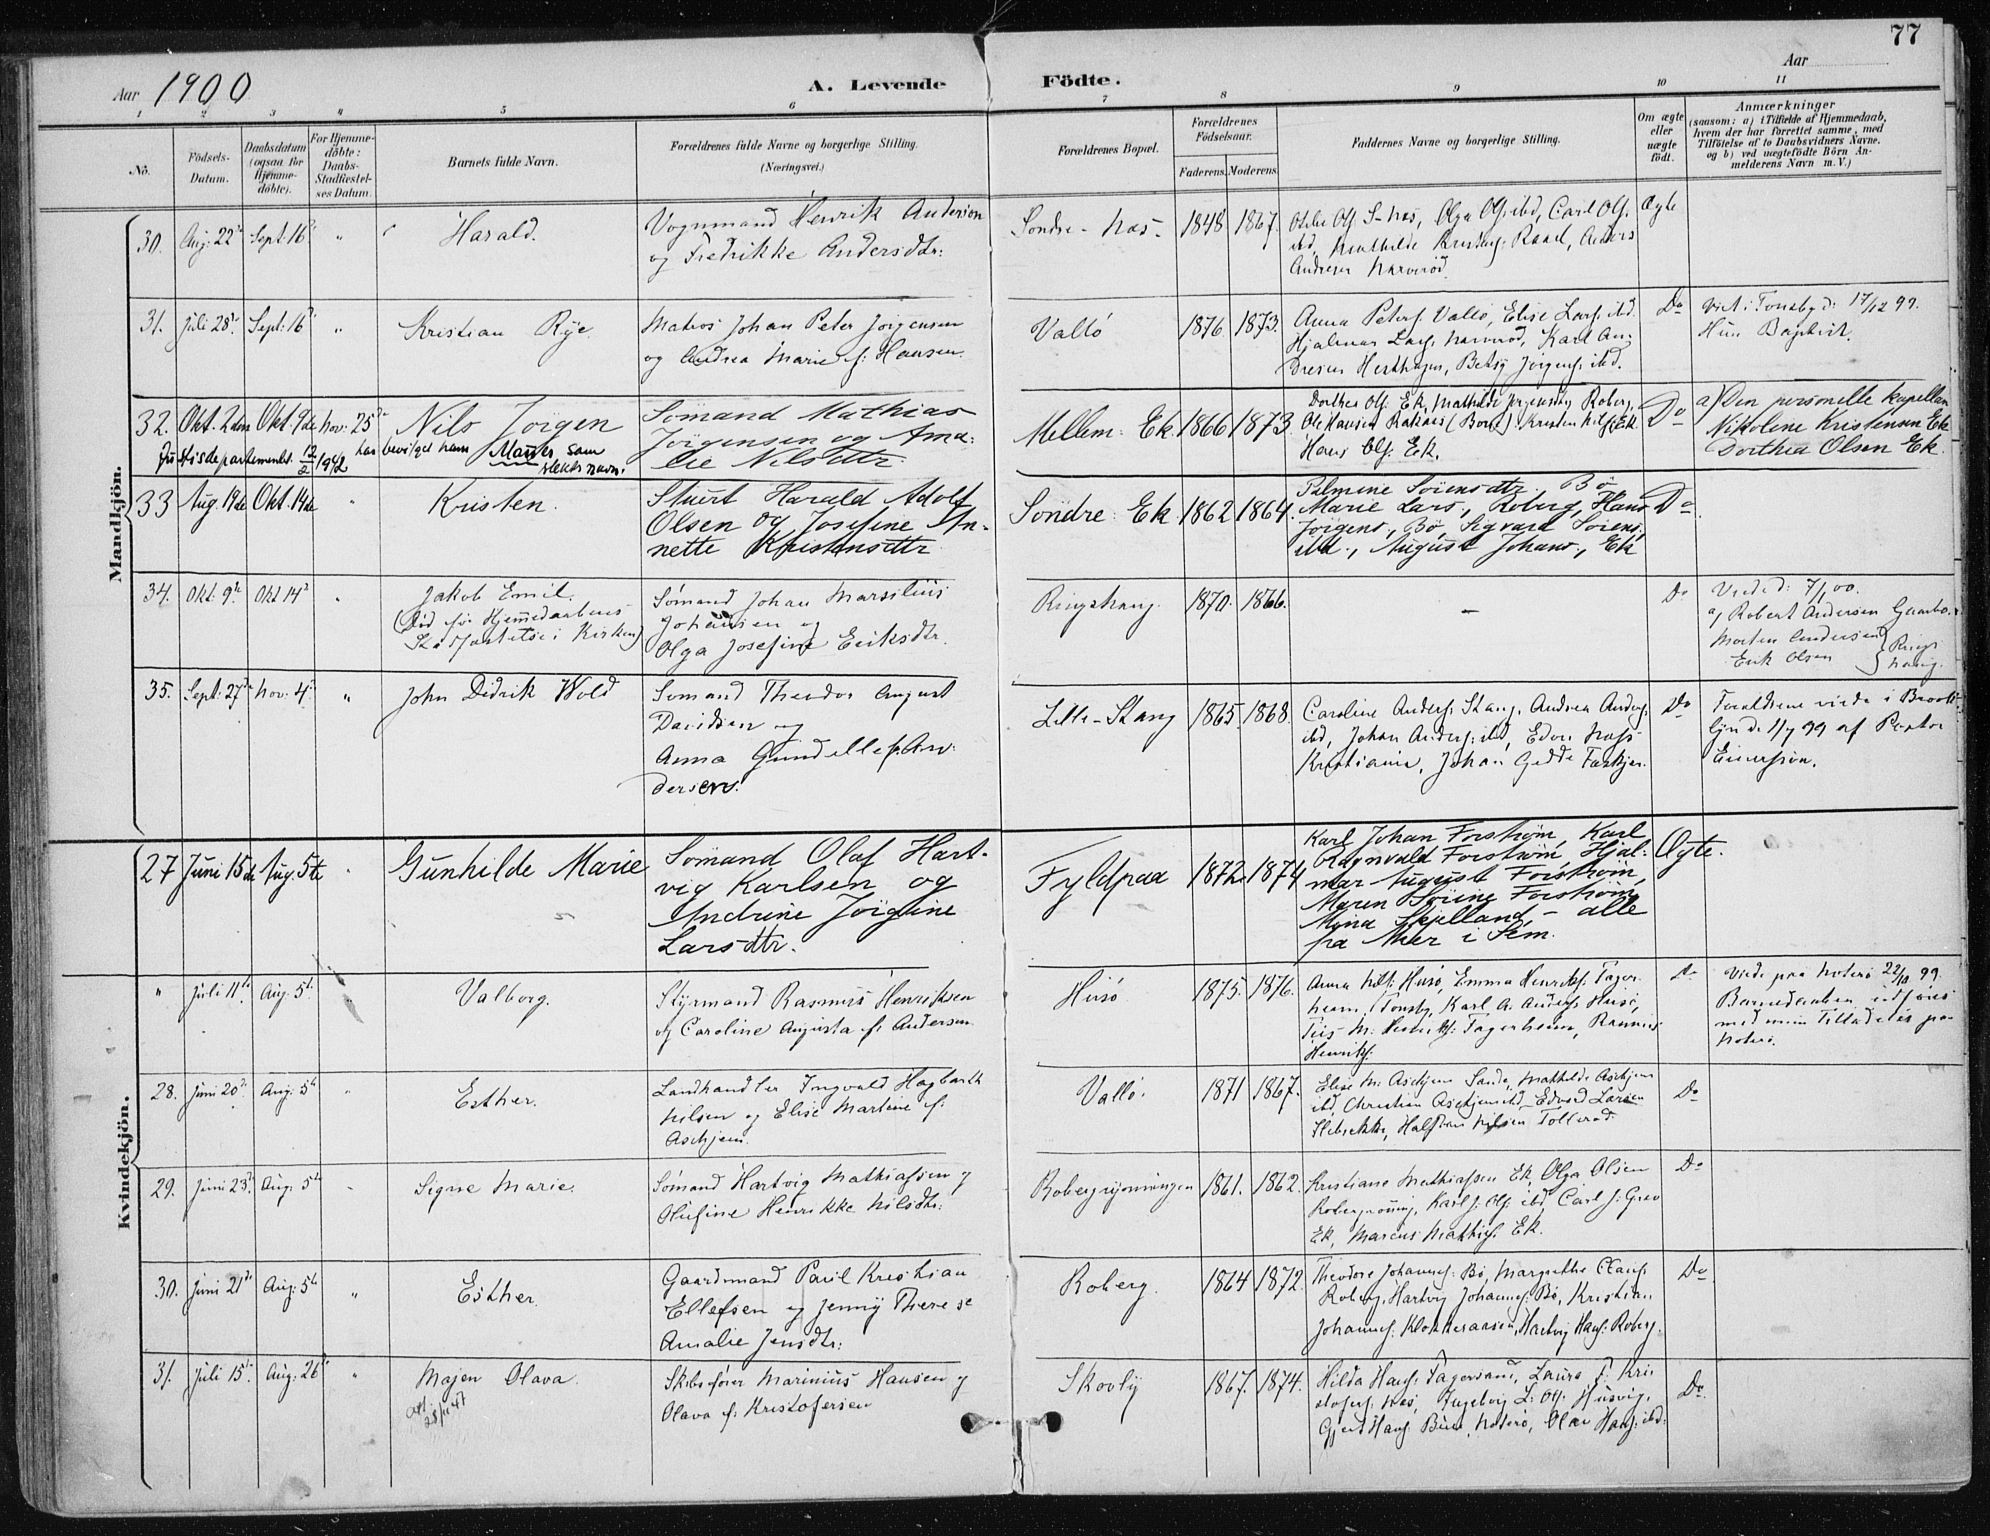 77
Aar 1900
A. Levende Födte.
Aar
1 2 3 4 5 6 7 8 9 10 11
No.
Födsels-Datum.
Daabsdatum (ogsaa for Hjemme-döbte).
For Hjemme-döbte: Daabs-Stadfæstel-ses Datum.
Barnets fulde Navn.
Forældrenes fulde Navne og borgerlige Stilling. (Næringsvei.)
Forældrenes Bopæl.
Forældrenes Födselsaar.
Faderens. Moderens.
Faddernes Navne og borgerlige Stilling.
Om ægte eller uægte födt.
Anmærkninger
(saasom: a) i Tilfælde af Hjemmedaab,
hvem der har forrettet samme, med
Tilföielse af to Daabsvidners Navne,
og b) ved uægtefödte Börn An-
melderens Navn m. V.)
Mandkjön.
30. Aug: 22 Sept: 16 " Harald.
Vognmand Henrik Anderson
og Fredrikke Andersdtr:
Sondre - Nes - 1848 1867.
S-Nes, Olga Ols. ibd, Carl Ols.
ibd, Mathilde Raael, Anders
Andresen Narverød
Ægte
31. Juli 28 Sept: 16 " Kristian Rye.
Matros Johan Peter Jørgensen
og Andrea Marie f: Hansen.
Vallö 1876 1873.
Anna Peters. Vallö, Elise Lars. ibd.
Hjalmar Lars. Narverød, Karl An-
dresen Herthagen, Betsy Jörgens. ibd.
Do
Viet i Tonsberg d: 17/12 99.
Hun Baptist.
32. Okt. 2den Okt. 9de Nov: 25 Nils Jörgen
Justisdepartementet 12/2 1942 har bevilget ham Mauer som slektsnavn.
Sömand Mathias
Jörgensen og Ama-
lie Nilsdttr.
Mellem Ek 1866 1873
Dorthea Ols. Ek, Mathilde Jørgensen, Roberg,
Ole Hansen Kristen Nils. Ek
Hans Ols. Ek.
Do
a) Den personelle kapellan
Nikoline Kristensen Ek
Dorthea Olsen Ek.
33 Aug. 19de Okt. 14de " Kristen.
Stuert Harald Adolf
Olsen og Josefine An-
nette Kristensdttr
Söndre Ek 1862 1864.
Palmine Sörensdtr. Bö
Marie Lars., Roberg, Hans
Jörgens., Bö, Sigvard Sörens.
ibd., August Johans., Ek
Do
34. Okt. 9 Okt 14 " Jakob Emil.
(Död før Hjemmedaabens
Stadfæstelse i Kirken)
Sömand Johan Marsilius
Johansen og
Olga Josefine Eriksdtr.
Ringshaug. 1870. 1866. -
Do
Viede d: 7/1 00.
a) Robert Andersen Gaarbo.
Morten Andersen
Erik Olsen } Rings haug.
35. Sept: 27 Nov: 4 " John Didrik Wold
Sømand Theodor August
Davidsen og
Anna Gundelle f. An-
dersen.
Lille-Stang 1865. 1868.
Caroline Anders. Stang, Andrea Anders.
ibd, Johan Anders. ibd,
Kristiania, Johan Gedde
Do
Forældrene viede i Brook-
lyn d. 1/7 99 af Pastor
Kvindekjön.
27 Juni 15de Aug. 5te " Gunhilde Marie
Sömand Olaf Hart-
vig Karlsen og
Andrine Jörgine
Larsdttr.
Fyldpaa 1872 1874
Karl Johan Forström, Karl
Ragnvald Forström, Hjal-
mar August Forström,
Maren Sörine Forström,
Mina Skjelland, - alle
pa Auer i Sem.
Ægte.
" Juli 11 Aug. 5 Valborg.
Styrmand Rasmus Henriksen
og Caroline Augusta f: Andersen
Husö 1875. 1876.
Anna Nils: Husö, Emma Henriks. Fager-
heim, Tonsby, Karl A. Anders. Husö,
Fagerheim, Rasmus
Henriks:
Do
Viede paa Noterö 22/10 99.
Barnedaaben indføres
med min Tilladelse paa
Noterö.
28. Juni 20 Aug. 5 " Esther.
Landhandler Ingvald Hagbarth
Nilsen og Elise Martine f:
Askjem.
Vallö. 1871 1867.
Elise M: Askjem Sande, Mathilde Askjem
ibd, Christian Askjem ibd, Edvard Larsen
Slebrekke, Halfdan Nilsen Tollerød.
Do
29. Juni 23 Aug. 5 Signe Marie.
Sömand Hartvig Mathiassen og
Olufine Henrikke Nilsdtr:
Robergrynningen 1861. 1862.
Kristiane Mathiassen Ek, Olga Olsen
Karl J: Ols. ibd, Carl J: Grav
Ek, Marcus Mathis. Ek.
Do
30. Juni 21 Aug. 5 " Esther.
Gaardmand Paul Kristian
Ellefsen og Jenny Therese
Amalie Jensdtr:
Roberg. 1864 1872.
Theodore Johannes: Bö, Margrethe Claus.
Roberg, Hartvig Johannes. Bö, Kristian
Johannes. Klokkeraasen, Hartvig Hans: Roberg.
Do
31. Juli 15 Aug: 26 " Majen Olava.
28/11 47
Skibsfører Marinius Hansen og
Olava f: Kristofersen
Skovly 1867. 1874.
Hilda Hans. Laura F: Kris-
tofers. Nes, Ingeborg L: Ols. Husvig,
Gjert Hans. Noterö, Olav Hans: ibd:
Do.